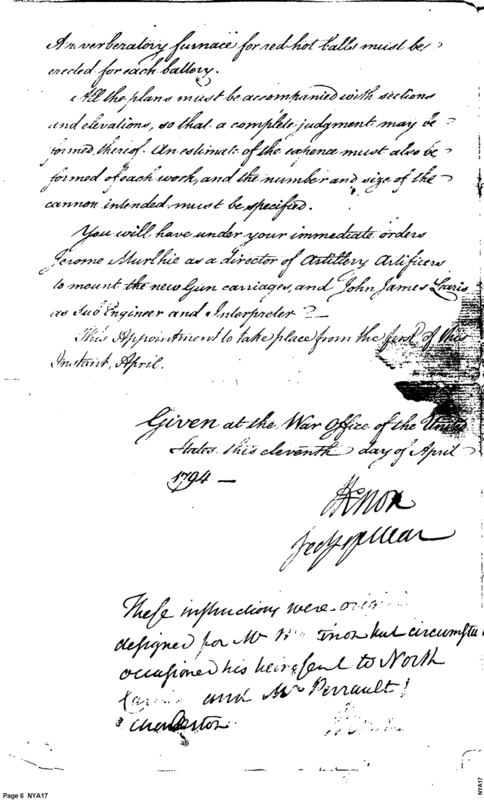 An reverberatory furnace for red-hot balls must be
erected for each battery.
All the plans must be accompanied with sections
and elevations, so that a complete judgment may be
formed thereof. An estimate of the expence must also be
formed of each work, and the number and size of the
cannon intended must be specified.
You will have under your immediate orders
Jerome as a director of Artillery Artificers
to mount the new Gun carriages, and John James
as Sub Engineer and Interpreter
This Appointment to take place from the first of this
Instant, April.
Given at the War Office of the United
States this eleventh day of April
1794 —
HKnox
Secy of War
These instructions were
designed for Mr but
occasioned his being sent to North
and Mr Perrault
Charleston
Page 6 NYA17
NYA17